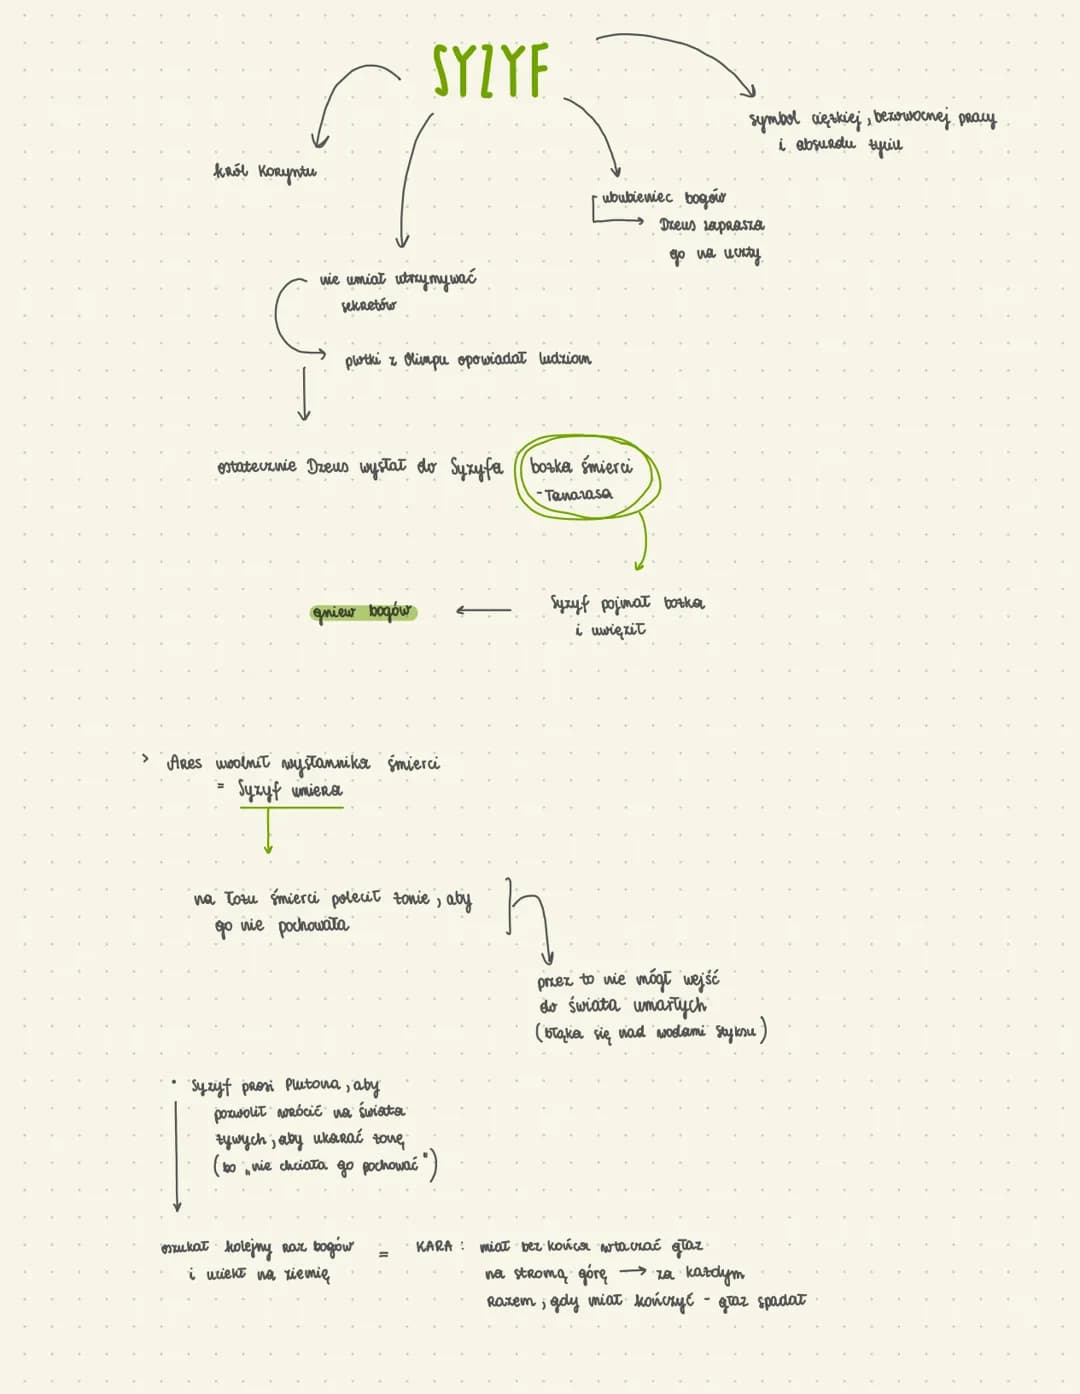 SYZYF
symbol ciężkiej, bezowocnej pracy
i absurdu życiu
król Koryntu
ububieniec bogów
Dzeus zaprasza
go na uczty
nie umiał utrzymywać
sekretów
plotki z Olimpu opowiadał ludziom
ostatecznie Dzeus wysłał do Syzyfa bożka śmierci
- Tanazasa
Syzyf pojmał bożka
i uwięził
gniew bogów
> Ares uwolnił wysłannika śmierci
= Syzyf umiera
na łożu śmierci polecił żonie, aby
go nie pochowała
przez to nie mógł wejść
do świata umarłych
(błąka się nad wodami Styksu)
• Syzyf prosi Plutona, aby
pozwolił wrócić na świata
żywych, aby ukarać żonę
(bo „nie chciała go pochować")
oszukał kolejny raz bogów = KARA : miał bez końca wtaczać głaz
i uciekł na ziemię
na stromą górę → za każdym
razem, gdy miał kończyć - głaz spadał